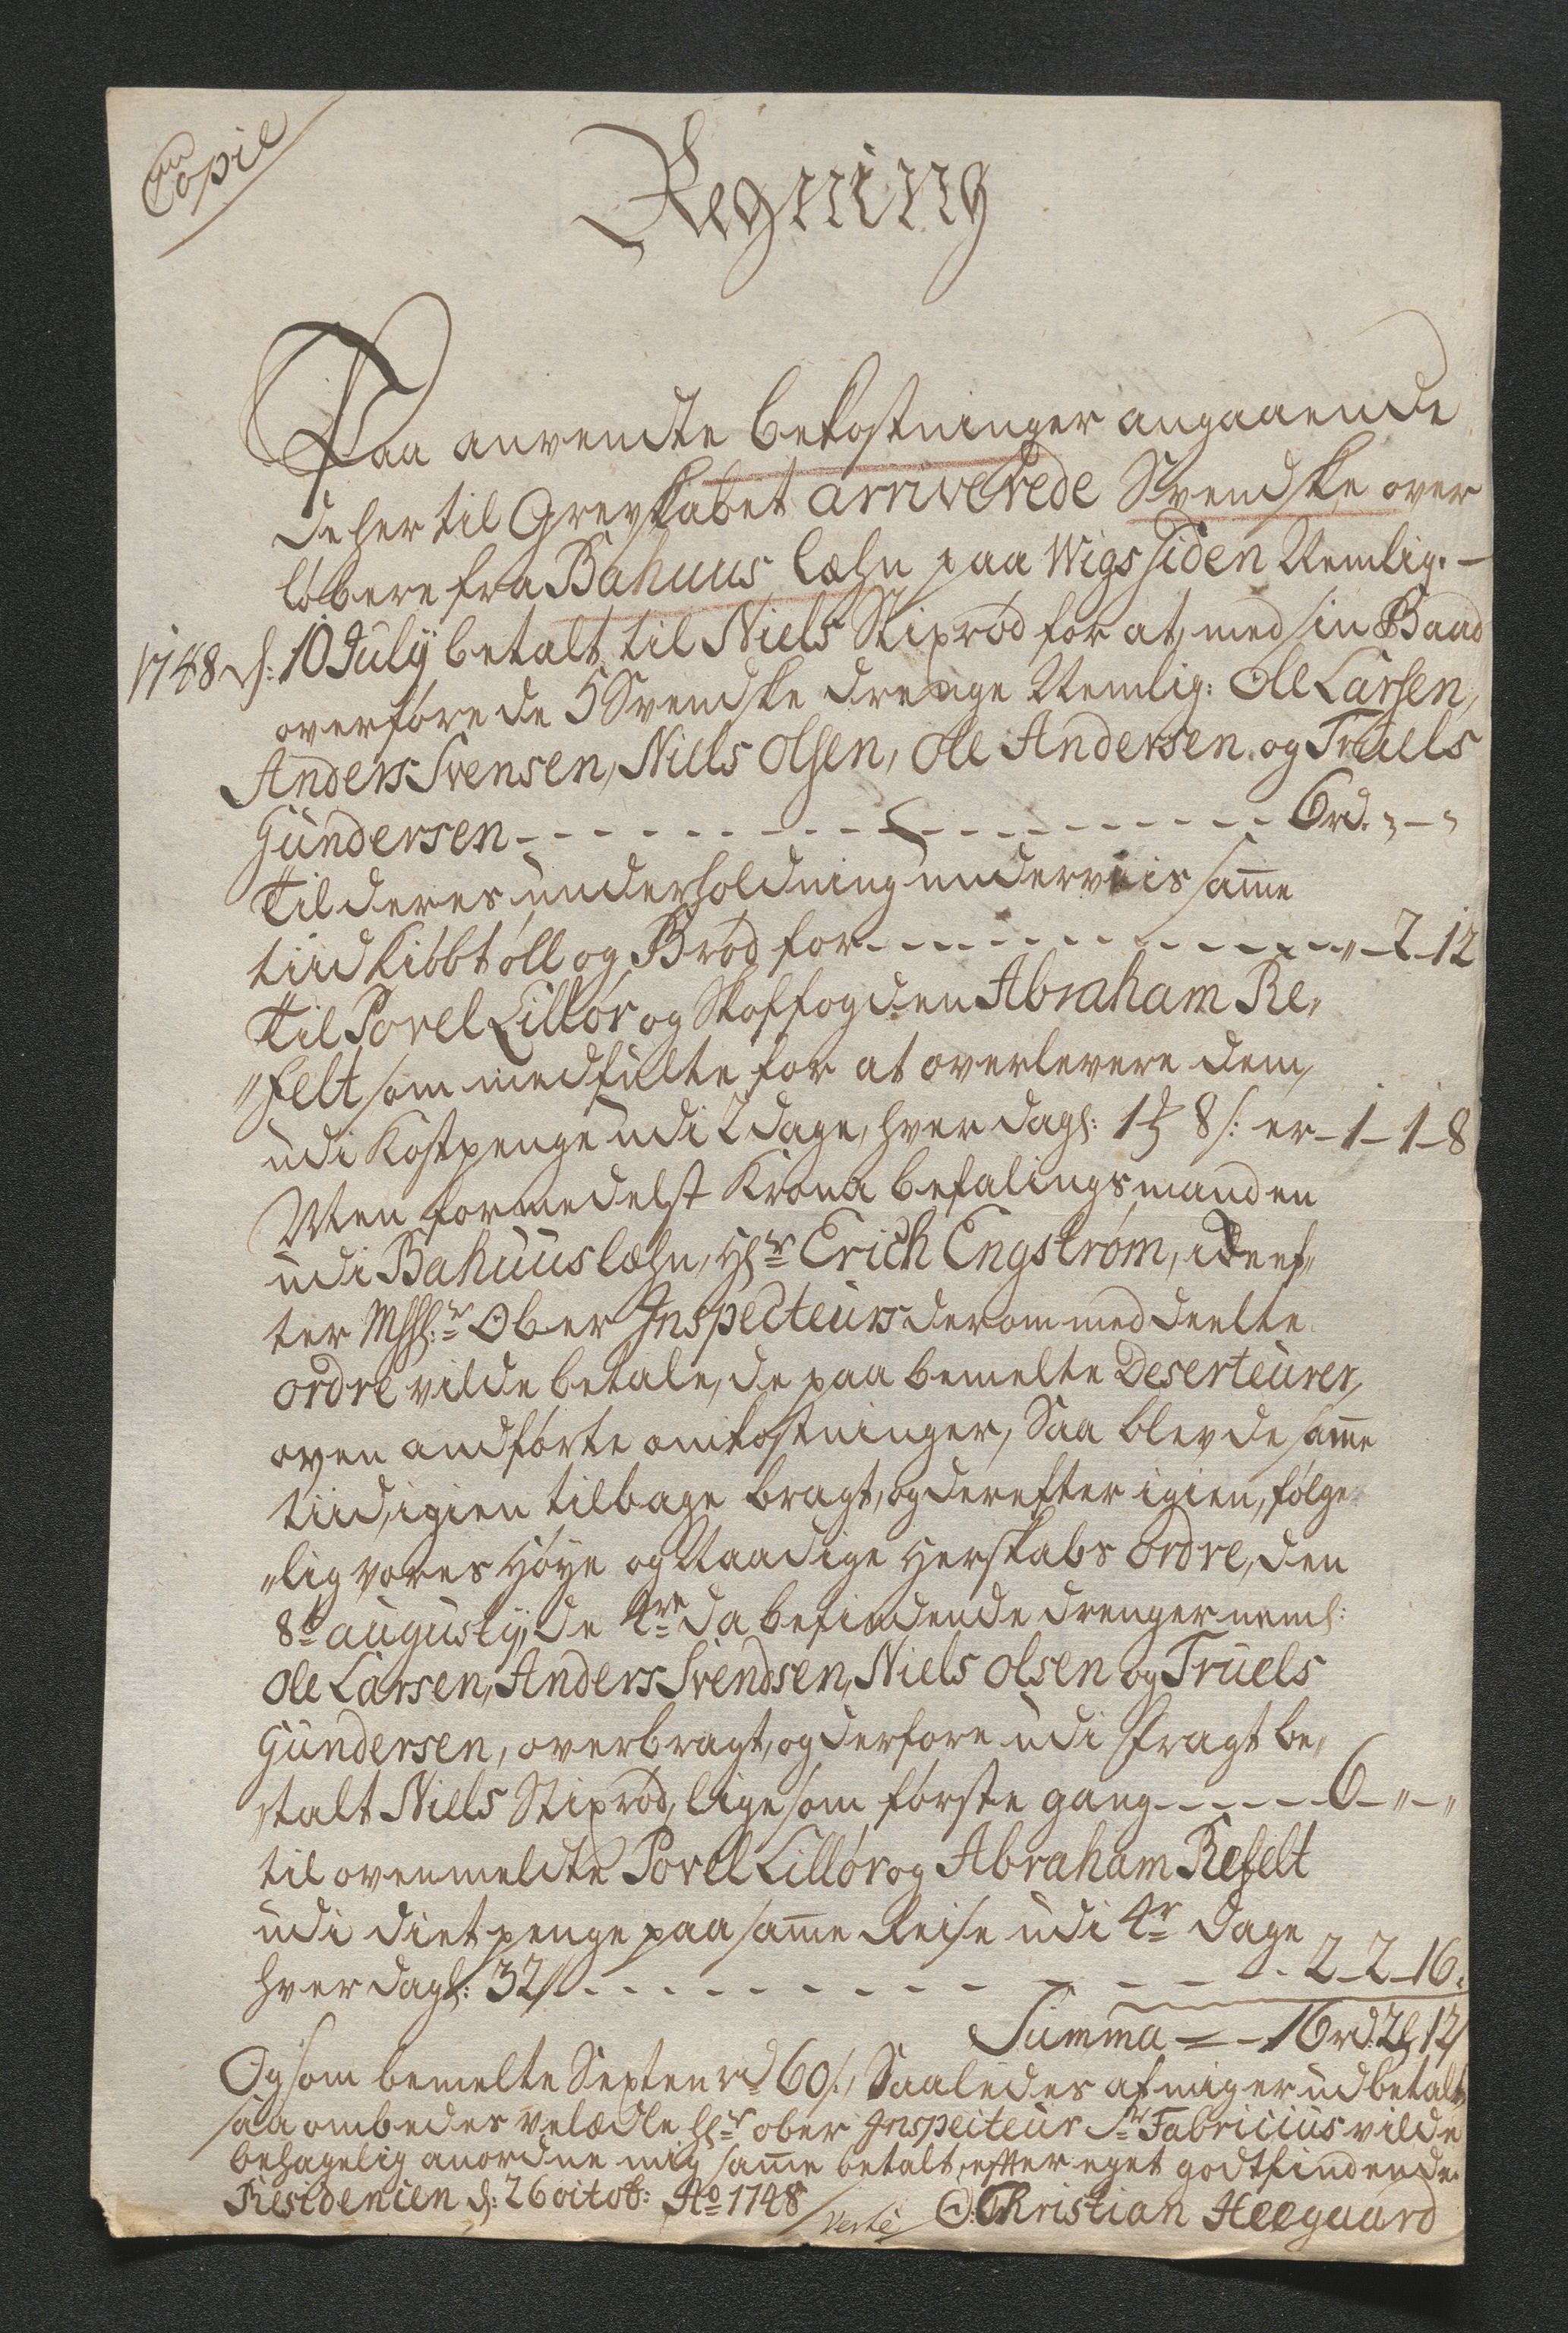 Copie
Regning
Paa anvendte bekostninger angaaende
de her til Grevskabet arriverede Svendske over
løbere fra Bahuus læhn paa Wigssiden Nemlig. -
1748 d: 10 July betalt til Niels Stixrød for at, med sin Baad
overføre de 5 Svendske drenge Nemlig: Ole Larsen,
Anders Svensen, Niels Olsen, Ole Andersen og Truels
Gundersen - - - - - - - - - - - - - - - - - 6 rd. „ - „
Til deres underholdning underveis samme
tiid kiøbt øll og Brød for - - - - - - - - - - - - „ - 2 - 12
Til Povel Lilløx og Skoffogden Abraham Re„
„felt som medfulte for at overlevere dem,
udi Kostpenge udi 2 dage, hver dagl: 1 ℔ 8 s: er - 1 - 1 - 8
Men formedelst Krona befalingsmanden
udi Bahuuslæhn, Hr Erich Engstrøm, ...
ter Mhhr: Ober Inspecteurs derom meddeelte
ordre vilde betale, de paa bemelte Deserteurer,
oven andførte omkostninger, Saa blev de samme
tiid, igien tilbage bragt, og derefter igien, følge
„lig vores Høye og Naadige Herskabs ordre, den
8de augusty, de 4re da befindende drenger neml:
Ole Larsen, Anders Svendsen, Niels Olsen og Truels
Gundersen, overbragt, og derfore udi fragt be„
„talt Niels Stixrød, lige som første gang - - - - - 6 - „ - „
til ovenmeldte Povel Lilløx og Abraham Refelt
udi diet penge paa samme Reise udi 4r dage
hver dagl: 32 s - - - - - - - - - - - - 2 - 2 - 16.
Summa - - 16 rd. 2 ℔ 12 s
Og som bemelte Sexten rd 60 s., Saaledes af mig er udbetalt,
saa ombedes velædle Hr ober Inspecteur Sr Fabricius vilde
behagelig anordne mig samme betalt, efter eget godtfindende.
Residencen d: 26 octob: Ao 1748
verte
C: Christian Heegaard